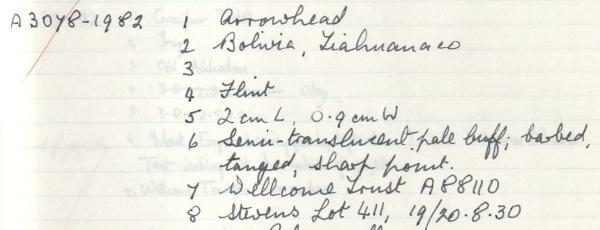 A3078-1982 1 Arrowhead
2 Bolivia, Tiahuanaco
3
4 Flint
5 2 cm L, 0.9 cm W
6 Semi-translucent pale buff; barbed,
tanged, sharp point.
7 Wellcome Trust A88110
8 Stevens Lot 411, 19/20.8.30